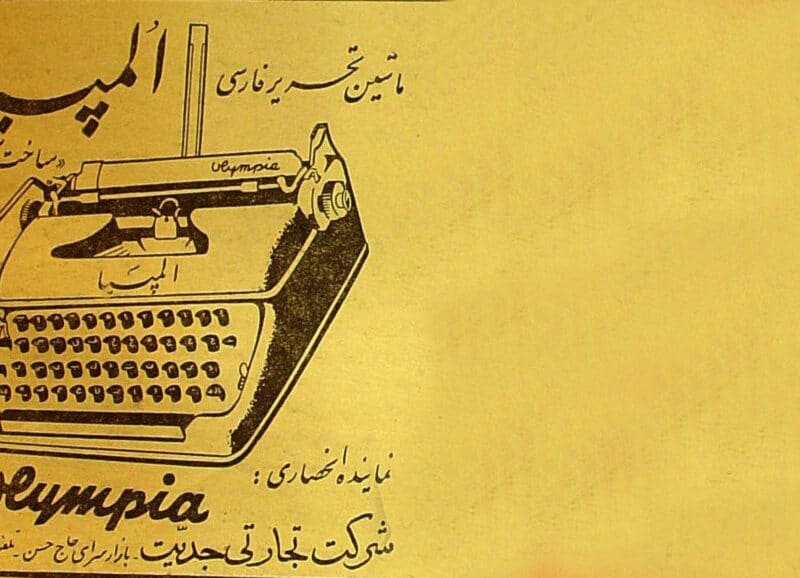 ماشین تحریر فارسی
المپیـ
«ساخت
Olympia
المپیا
نماینده انحصاری :
Olympia
شرکت تجارتی جدیّت - بازار سرای حاج حسن -